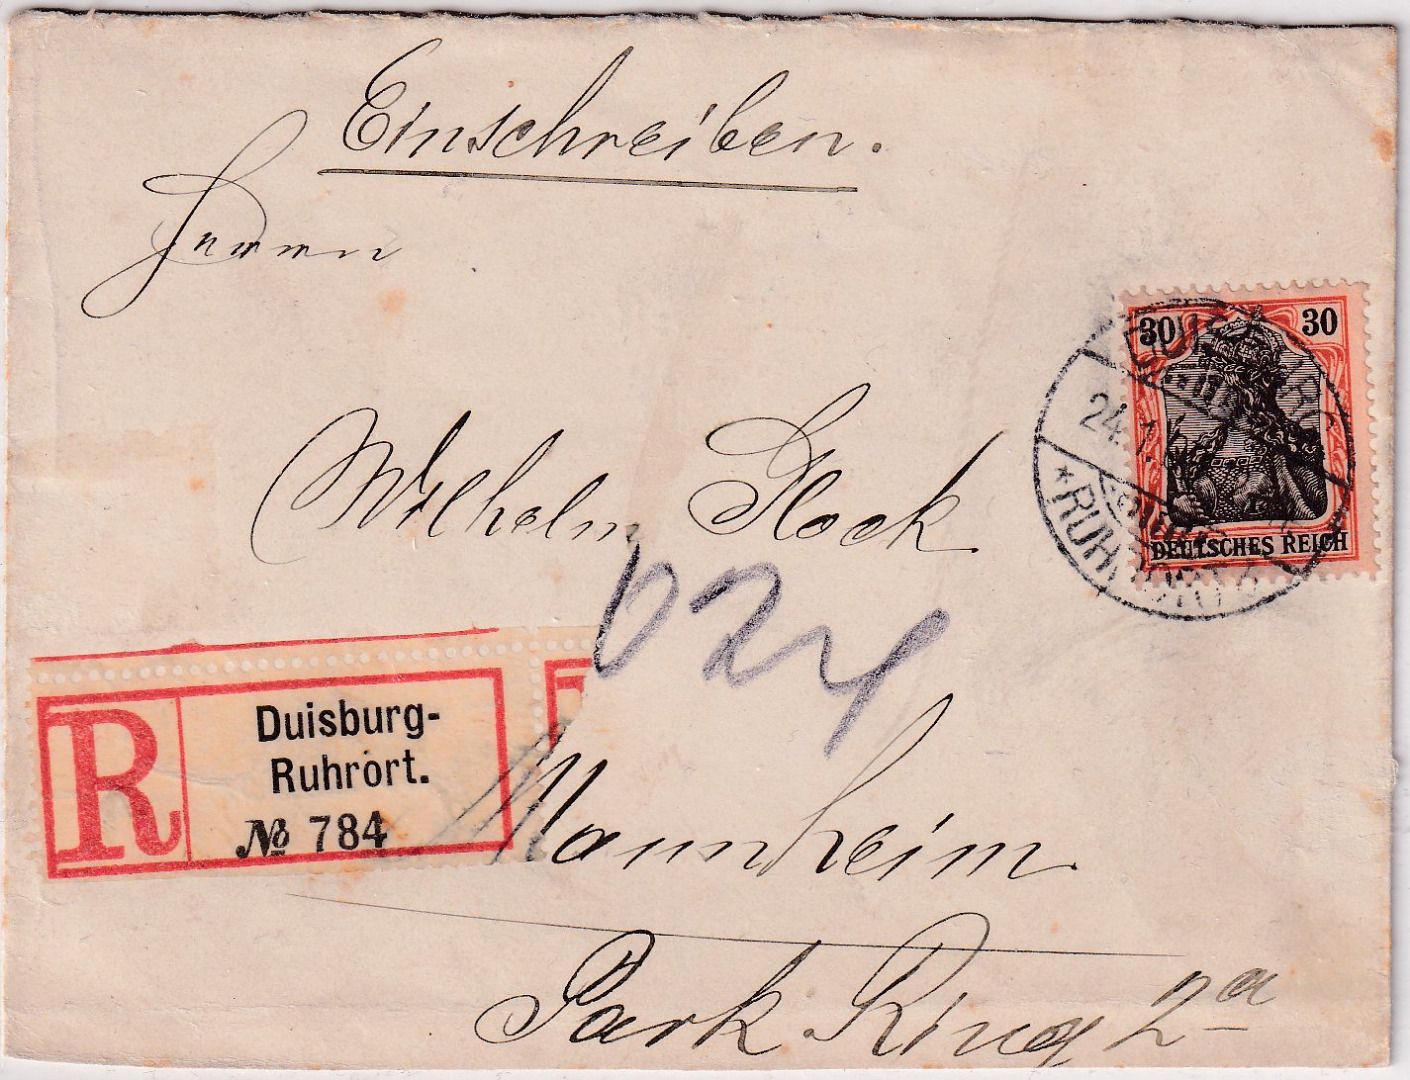 Einschreiben.
Herrn
30 30
DEUTSCHES REICH
DUISBURG
24.1.
*RUHRORT
Wilhelm Flock
024
R
Duisburg-
Ruhrort.
№ 784
Mannheim.
Park Ring 2a